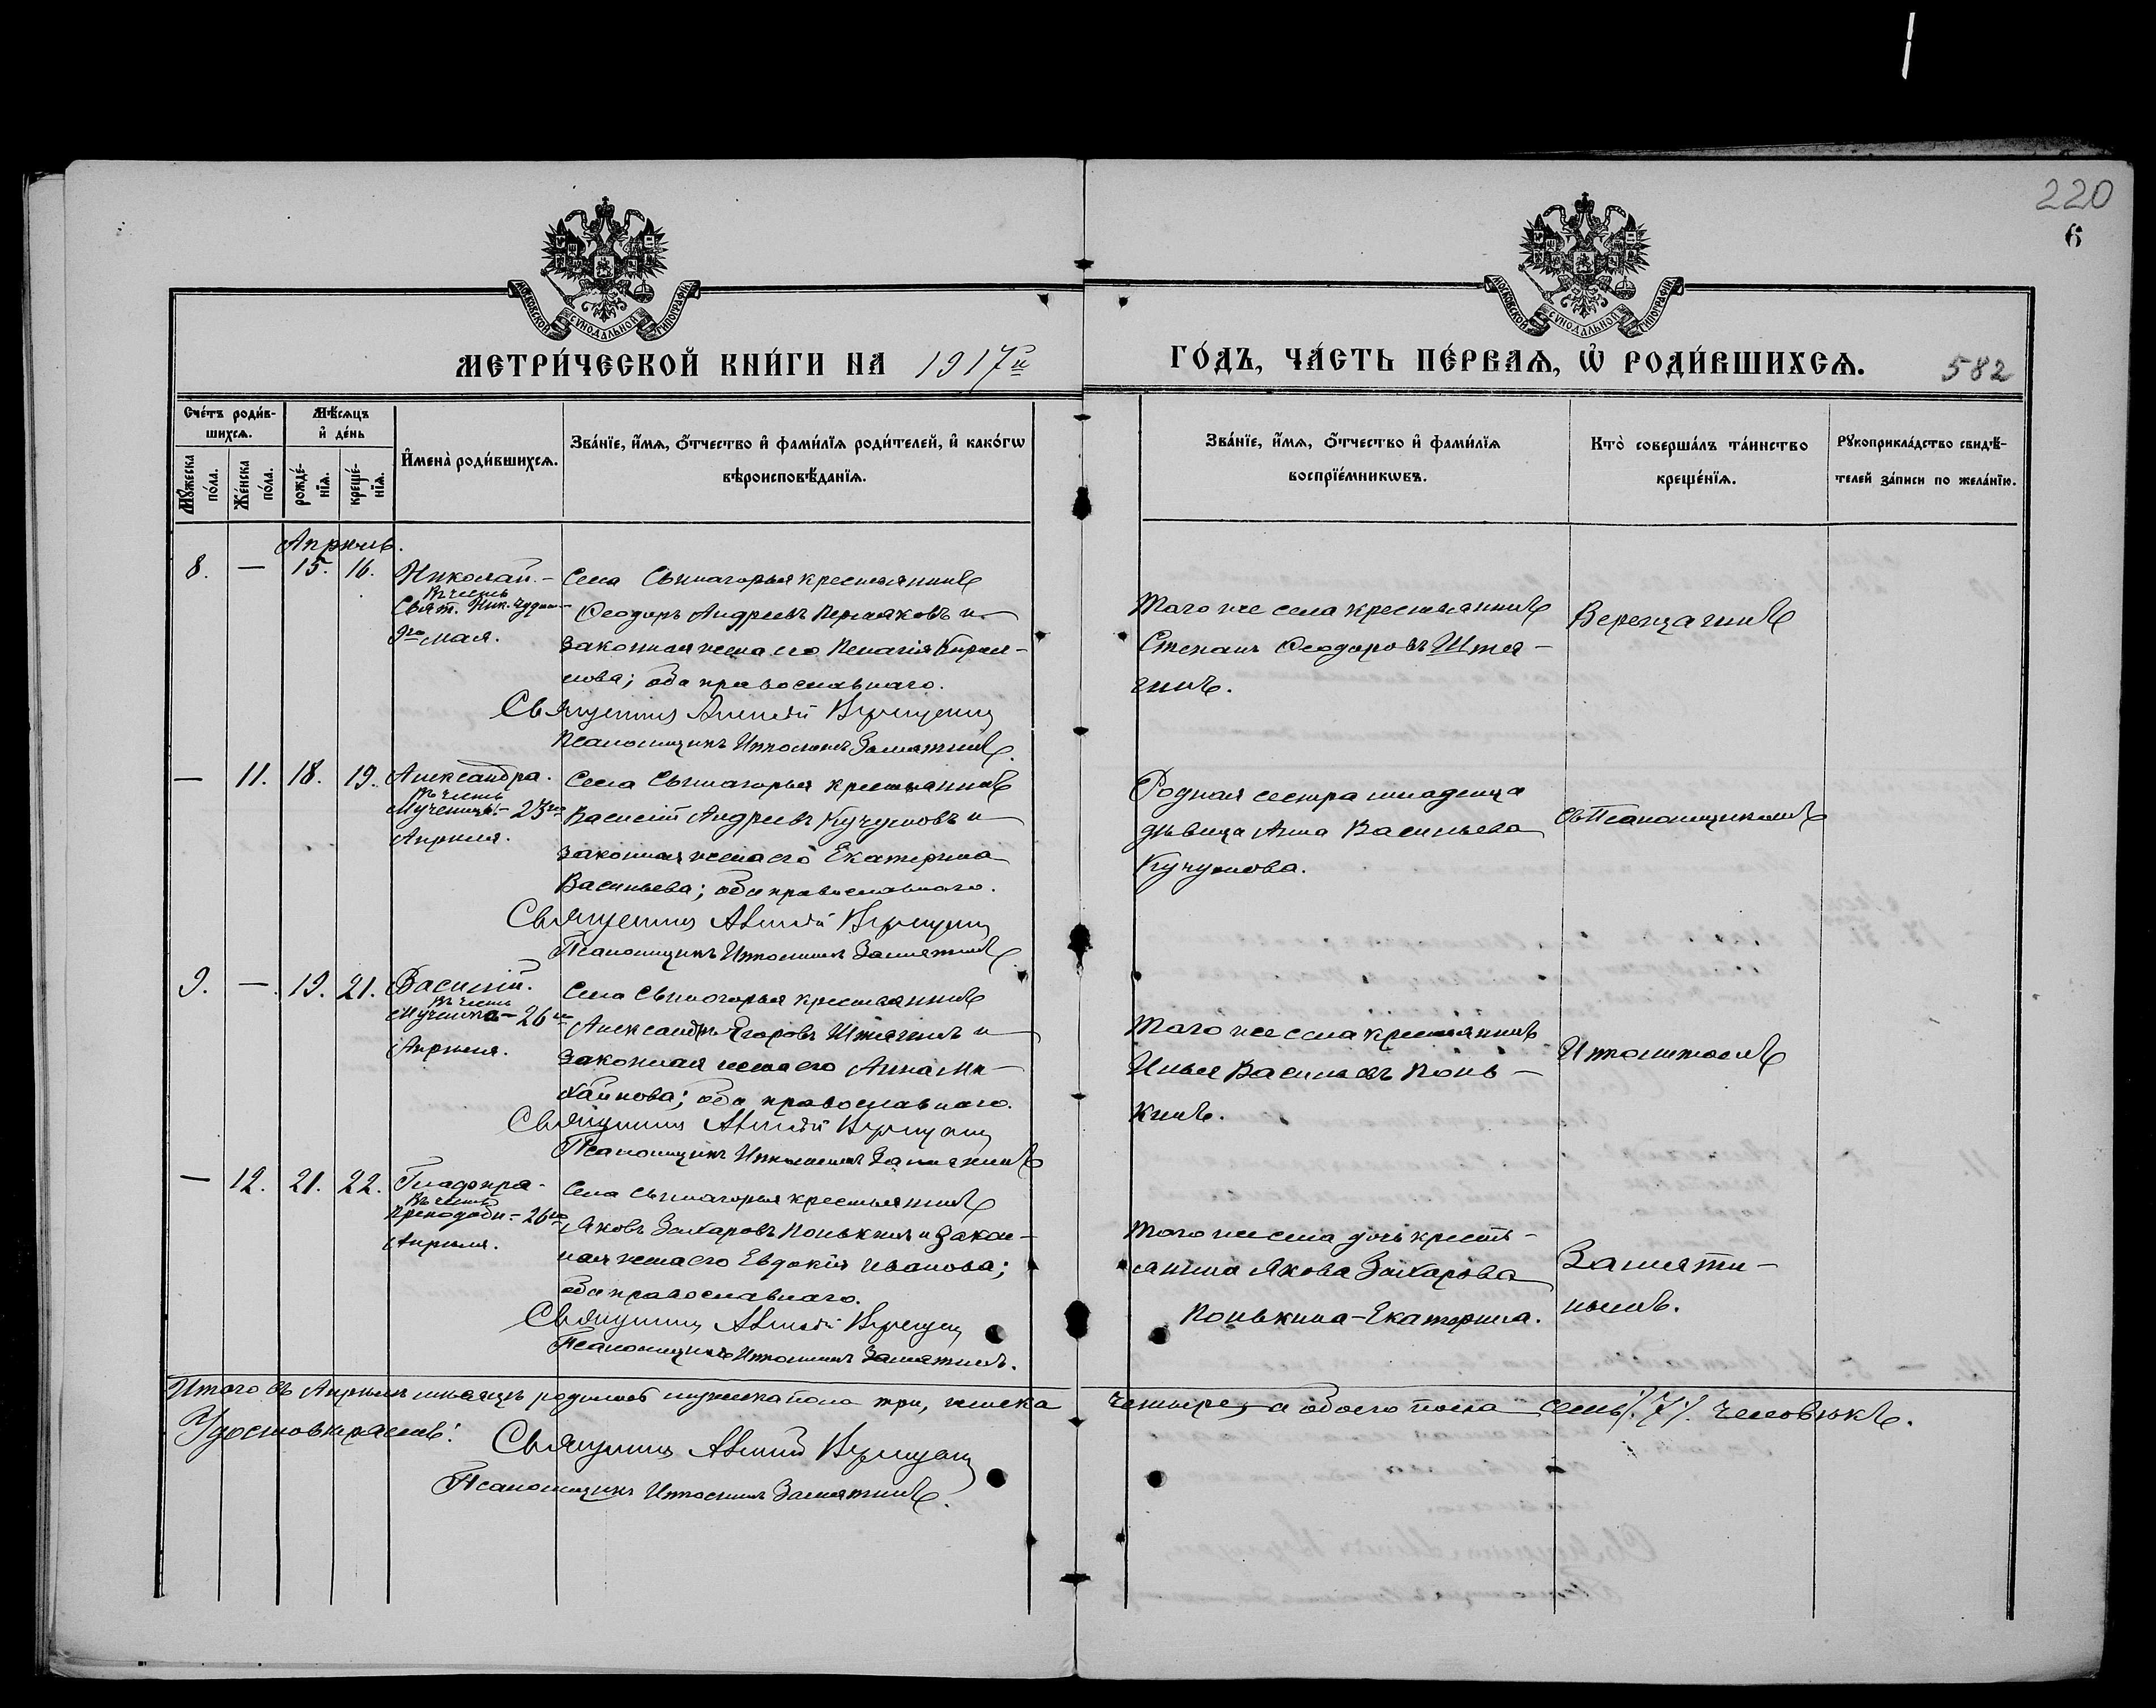 220
6
МОСКОВСКОЙ СѴНОДАЛЬНОЙ ТИПОГРАФІИ
МОСКОВСКОЙ СѴНОДАЛЬНОЙ ТИПОГРАФІИ
МЕТРИ́ЧЕСКОЙ КНИ́ГИ НА 1917й
ГО́ДЪ, ЧА́СТЬ ПЕ́РВАѦ, Ѽ РОДИ́ВШИХСѦ.
582
Сче́тъ роди́в-
шихсѧ.
Мꙋ́жеска по́ла.
Же́нска по́ла.
Мѣ́сѧцъ
и҆ де́нь
рожде́-
нїѧ.
креще́-
нїѧ.
И҆мена̀ роди́вшихсѧ.
Зва́нїе, и҆́мѧ, ѻ҆́тчество и҆ фами́лїѧ роди́телей, и҆ како́гѡ
вѣроисповѣ́данїѧ.
Зва́нїе, и҆́мѧ, ѻ҆́тчество и҆ фами́лїѧ
воспрїе́мникѡвъ.
Кто̀ соверша́лъ та́инство
креще́нїѧ.
Рꙋкоприкла́дство свидѣ́-
телей за́писи по жела́нїю.
Апрѣль.
8. — 15. 16. Николай. –
Въ честь
Свят. Ник. Чудот–
9го мая.
Села крестьянинъ
Ѳеодоръ Андреевъ Пермяковъ и
законная жена его Пелагія Кирил-
лова; оба православнаго.
Священникъ Алексѣй Верещагинъ
Псаломщикъ Ипполитъ Замятинъ.
Того же села крестьянинъ
Степанъ Ѳеодоровъ Штя-
гинъ.
Верещагинъ
— 11. 18. 19. Александра.
Въ честь
Мученицы – 23го
Апрѣля.
Села крестьянинъ
Василій Андреевъ Кучумовъ и
законная жена его Екатерина
Васильева; оба православнаго.
Священникъ Алексѣй Верещагинъ
Псаломщикъ Ипполитъ Замятинъ
Родная сестра младенца
дѣвица Анна Васильева
Кучумова.
съ Псаломщикомъ
9. — 19. 21. Василій.
Въ честь
Мученика – 26го
Апрѣля.
Села крестьянинъ
Александръ Егоровъ Штягинъ и
законная жена его Анна Ми-
хайлова; оба православнаго.
Священникъ Алексѣй Верещагинъ
Псаломщикъ Ипполитъ Замятинъ
Того же села крестьянинъ
Илья Васильевъ Понь-
кинъ.
Ипполитомъ
— 12. 21. 22. Глафира.
Въ честь
Преподобн – 26го
Апрѣля.
Села крестьянинъ
Яковъ Захаровъ Понькинъ и закон-
ная жена его Евдокія Иванова;
оба православнаго.
Священникъ Алексѣй Верещагинъ
Псаломщикъ Ипполитъ Замятинъ.
Того же села дочь кресть-
янина Якова Захарова
Понькина – Екатерина.
Замяти-
нымъ.
Итого въ Апрѣлѣ мѣсяцѣ родилось мужеска пола три, женска четыре, а обоего пола семь /7/ человѣкъ.
Удостовѣряемъ:
Священникъ Алексѣй Верещагинъ
Псаломщикъ Ипполитъ Замятинъ.